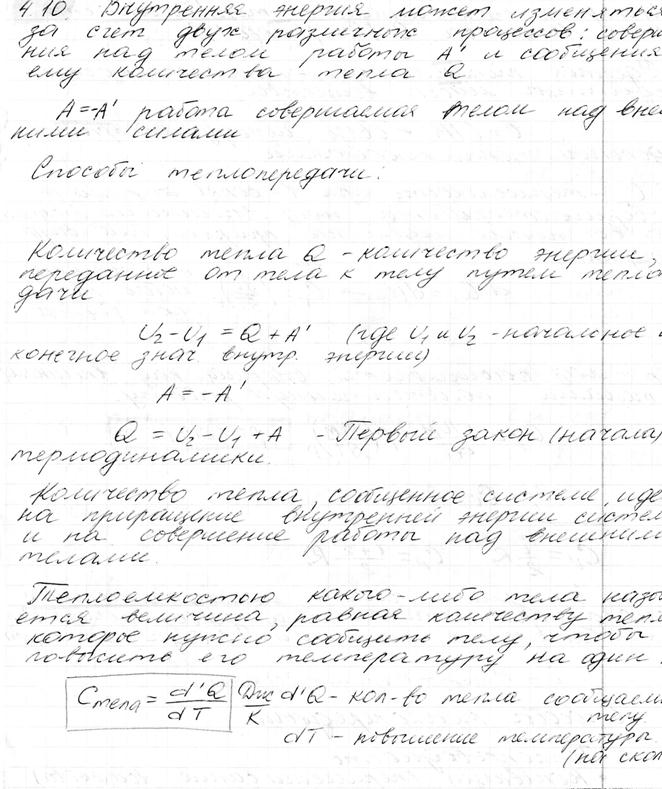 4.10. Внутренняя энергия может изменяться
за счет двух различных процессов: соверше
ния над телом работы A' и сообщения
ему количества тепла Q
A=-A' работа совершаемая телом над вне
ними силами
Способы теплопередачи:
Количество тепла Q - количество энергии,
переданное от тела к телу путем тепло
дачи
U₂-U₁ = Q + A' (где U₁ и U₂ - начальное и
конечное знач внутр. энергии)
A = - A'
Q = U₂ - U₁ + A - Первый закон (начала)
термодинамики.
Количество тепла, сообщенное системе, иде
на приращение внутренней энергии систем
и на совершение работы над внешним
телами.
Теплоемкостью какого-либо тела назы
ется величина, равная количеству тепл
которое нужно сообщить телу, чтобы
повысить его температуру на один
Cтела = d'Q/dT Дж/К d'Q - кол-во тепла сообщаем
телу
dT - повышение температуры
(на скол